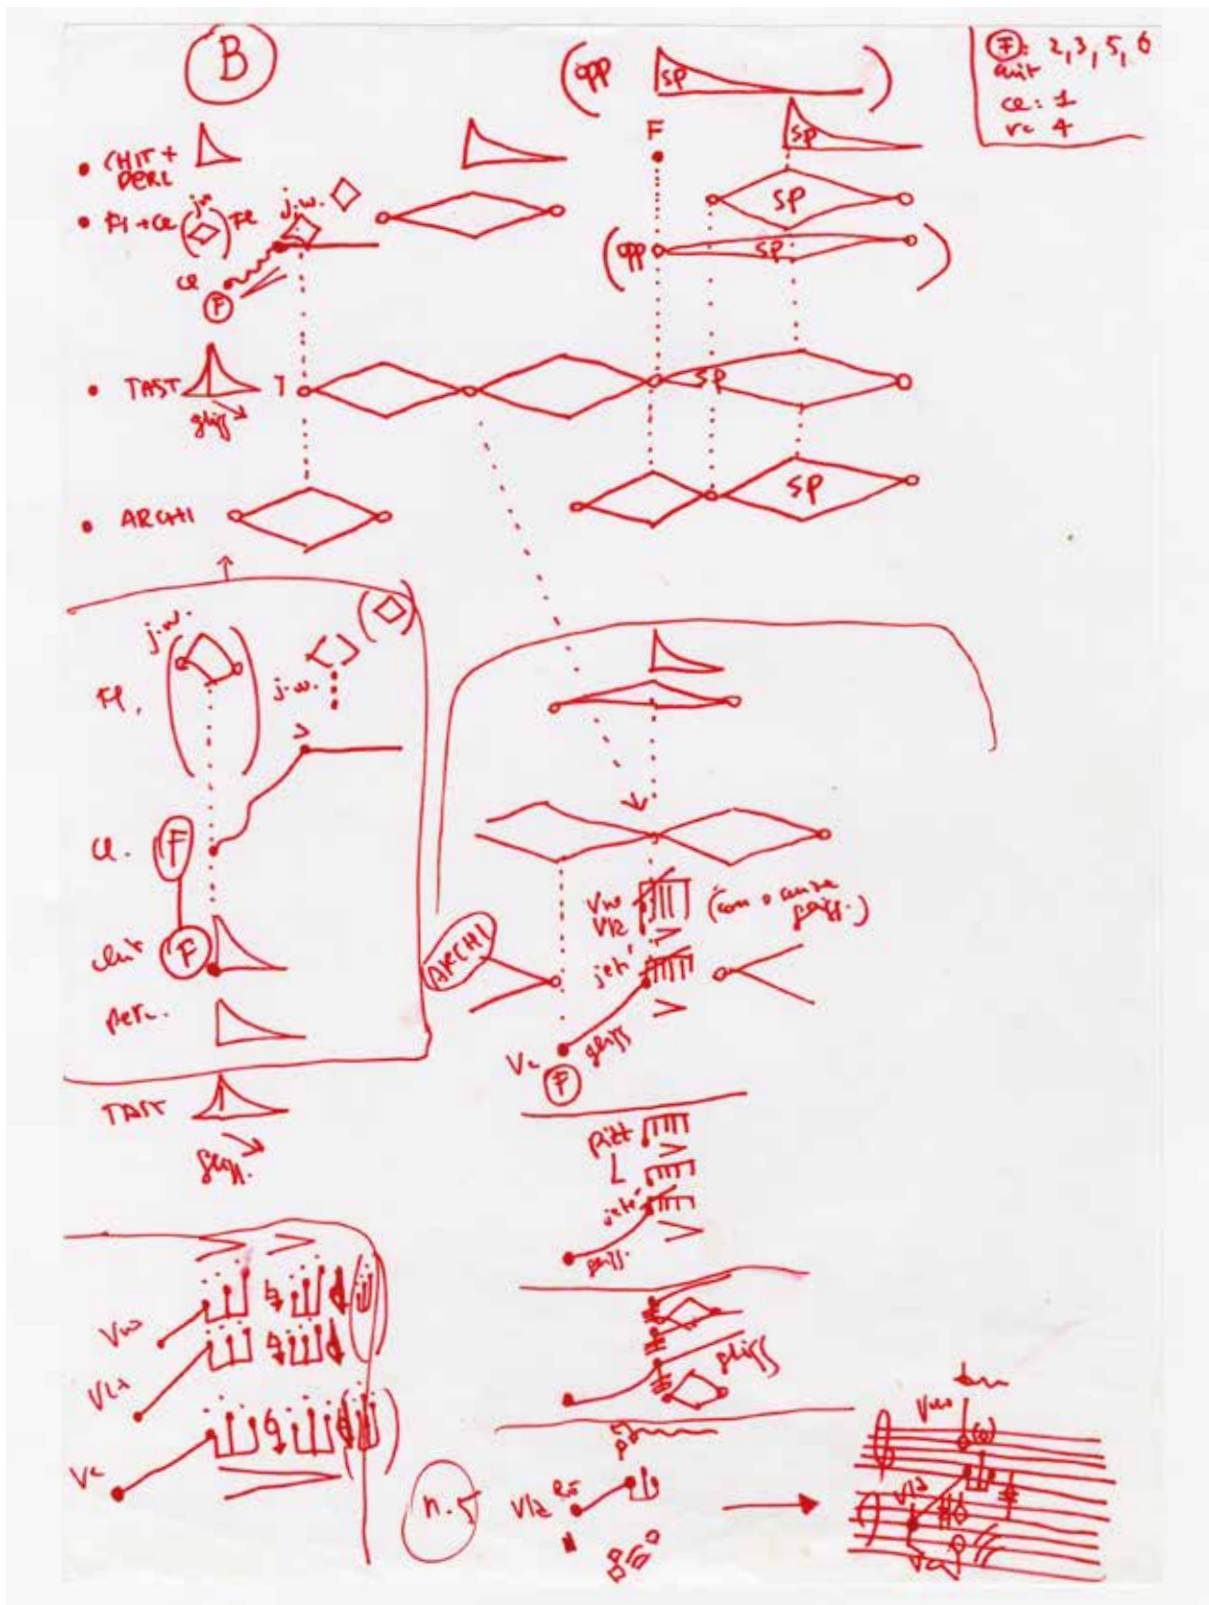 B
(opp sp)
F: 2, 3, 5, 6
chit
cl: 1
vc 4
F
sp
• CHIT +
PERC
• Fl + cl (j.w.) Fl
j.w.
sp
(opp sp)
cl
F
• TAST
gliss
sp
• ARCHI
sp
j.w.
Fl.
j.w.
cl. F
chit F
perc.
TAST
gliss.
ARCHI
Vno
Vla
(con o senza
gliss.)
jeté
gliss
Vc
F
pizz
L
jeté
gliss.
gliss
Vno
Vla
Vc
n. 5
Vla
Vno
Vla
Vc